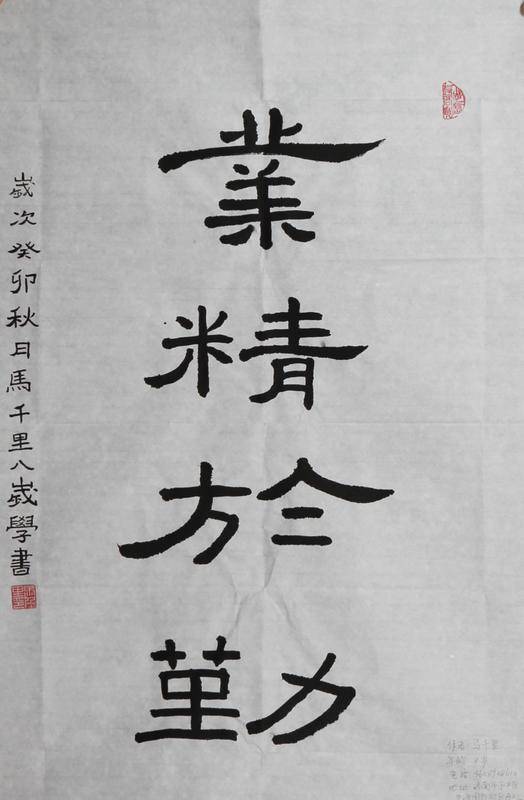 業精於勤
歲次癸卯秋月馬千里八歲學書